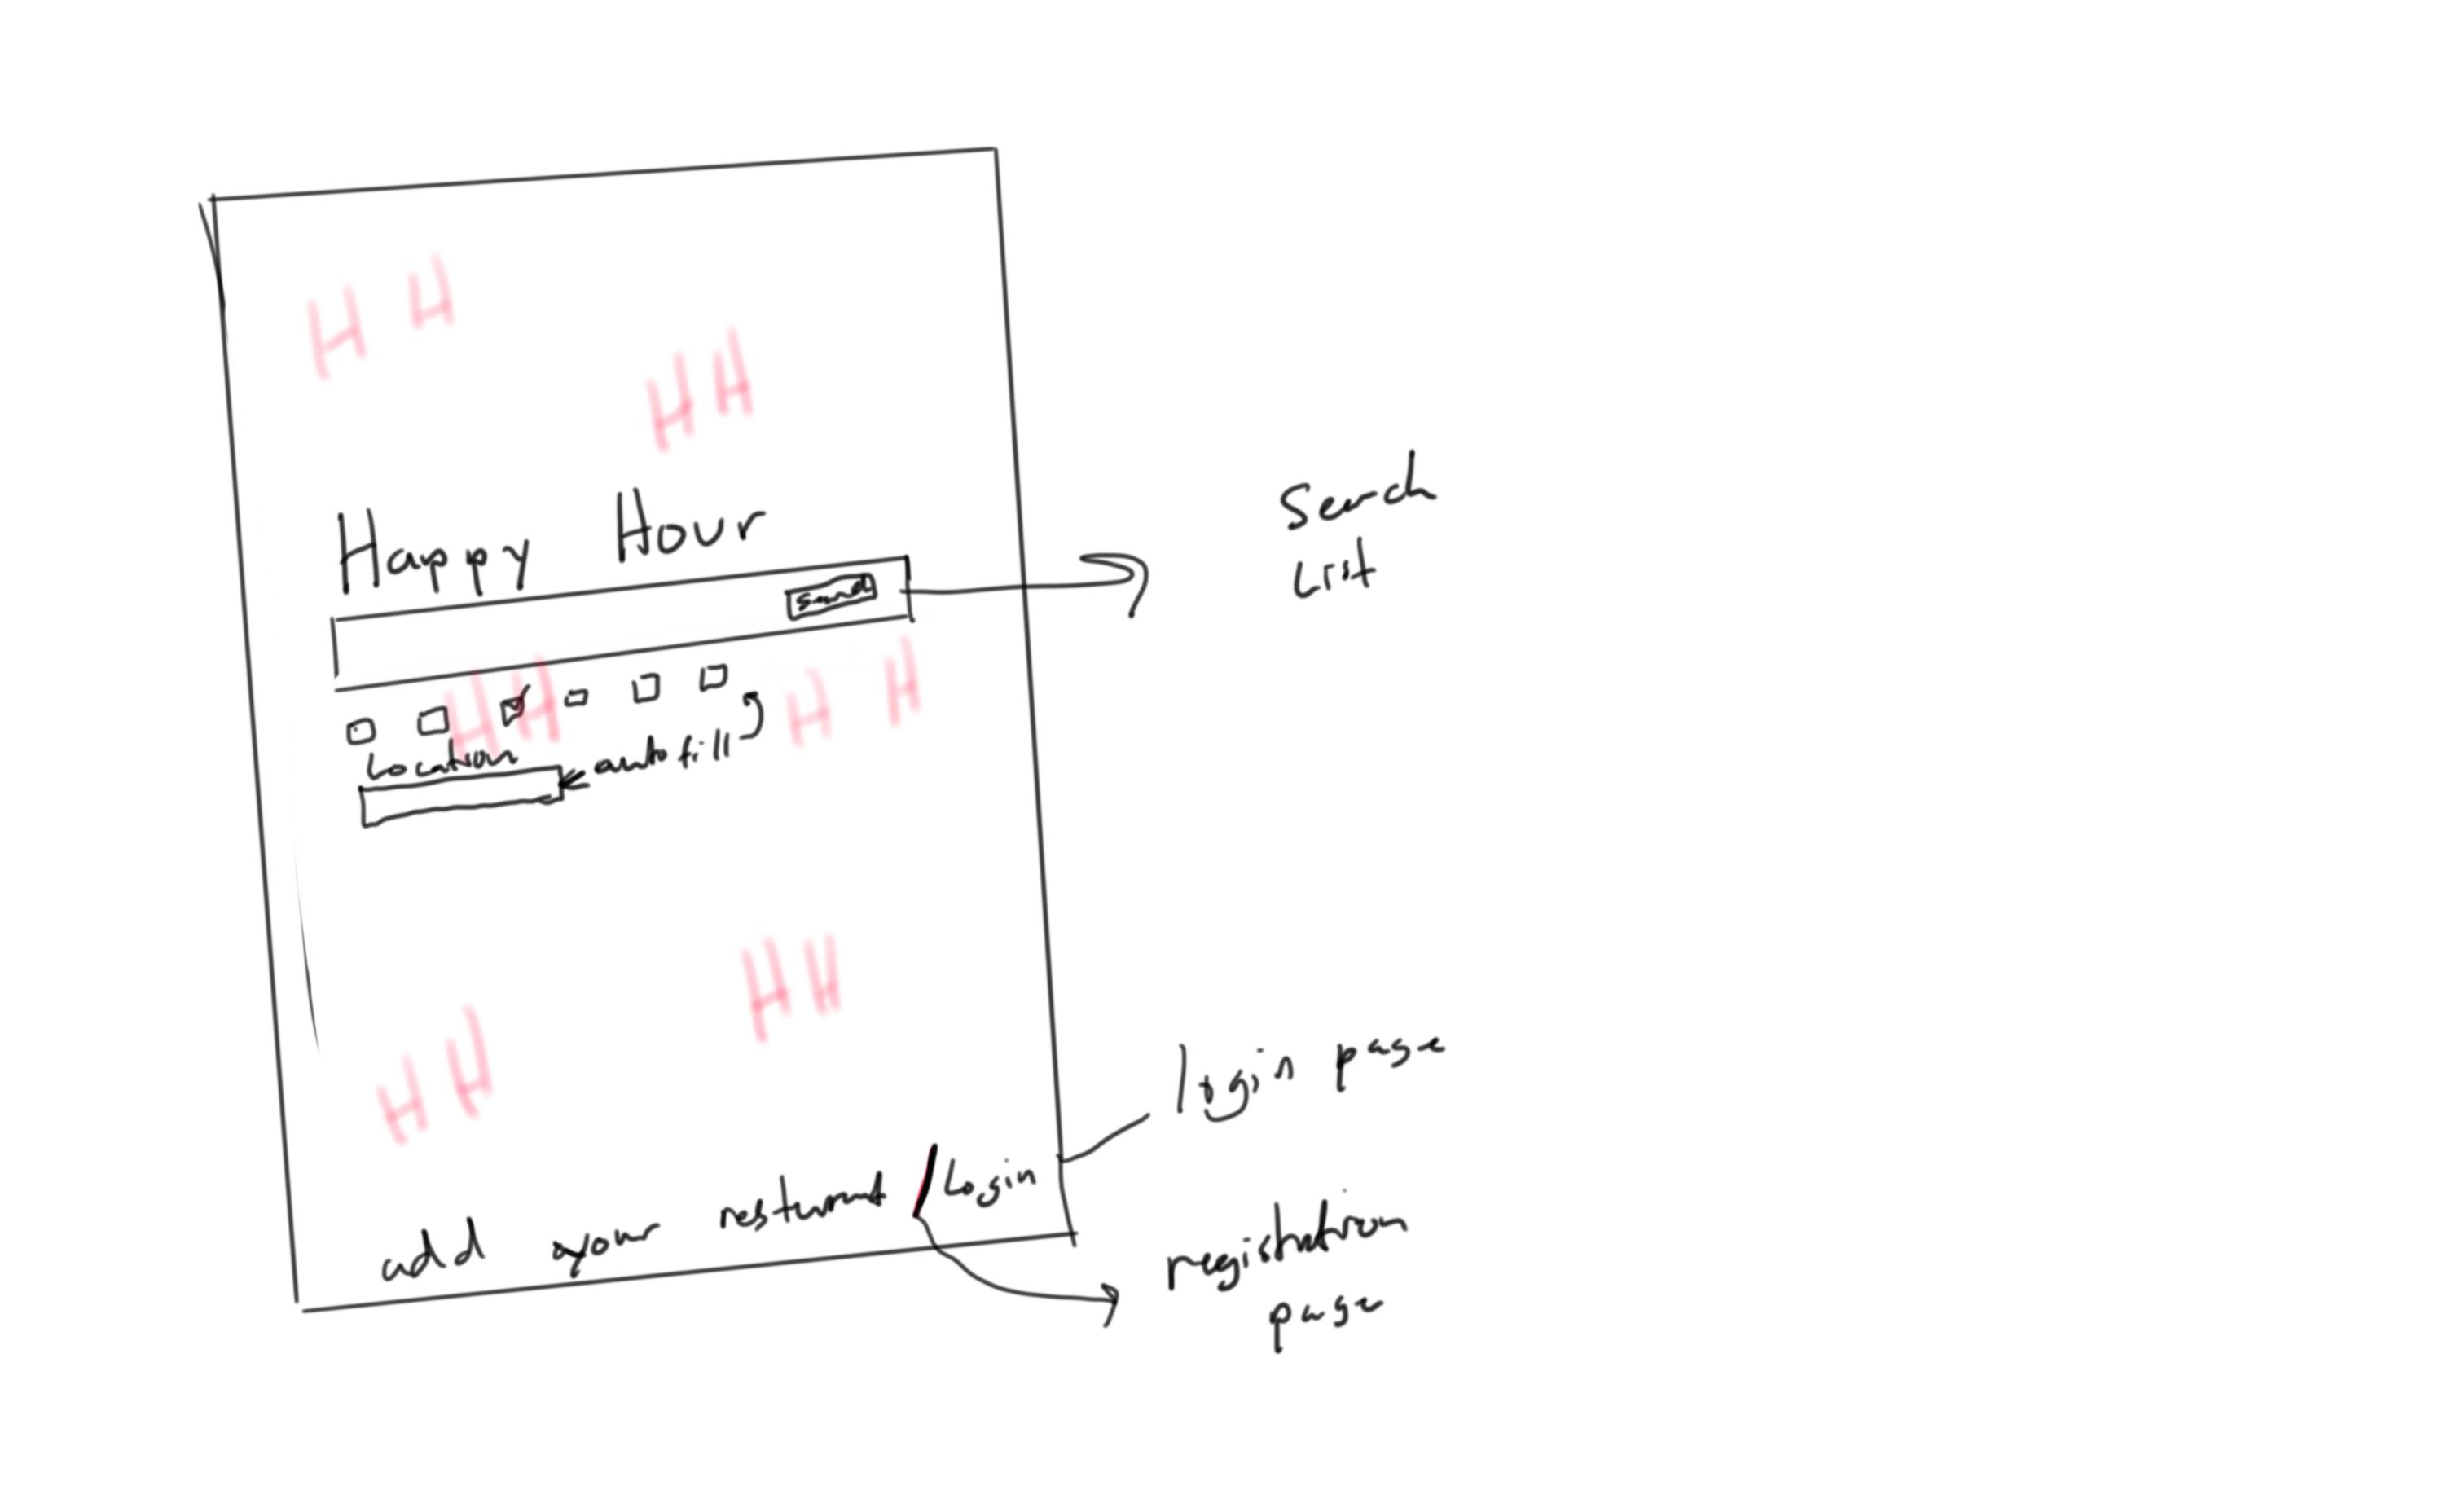 H H
H H
Happy Hour
Search
Search
List
H H
H H
Location
autofill
H H
H H
login page
add your resturant / Login
registration
page